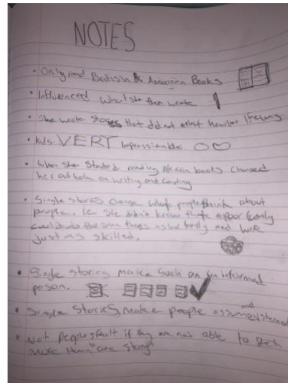 NOTES
• Only read British & American Books
• Influenced what she then wrote
• She wrote stories that did not affect her
• Kids VERY Impressionable
• When she started reading African books changed
her outlook on writing and
• Single stories change what people think about
people. ie she didn't know that a poor family
could do the same things as her family and were
just as skilled.
• Single stories make such an informed
person.
• Single stories make people assume
• Not people's fault if they are not able to get
more than one story